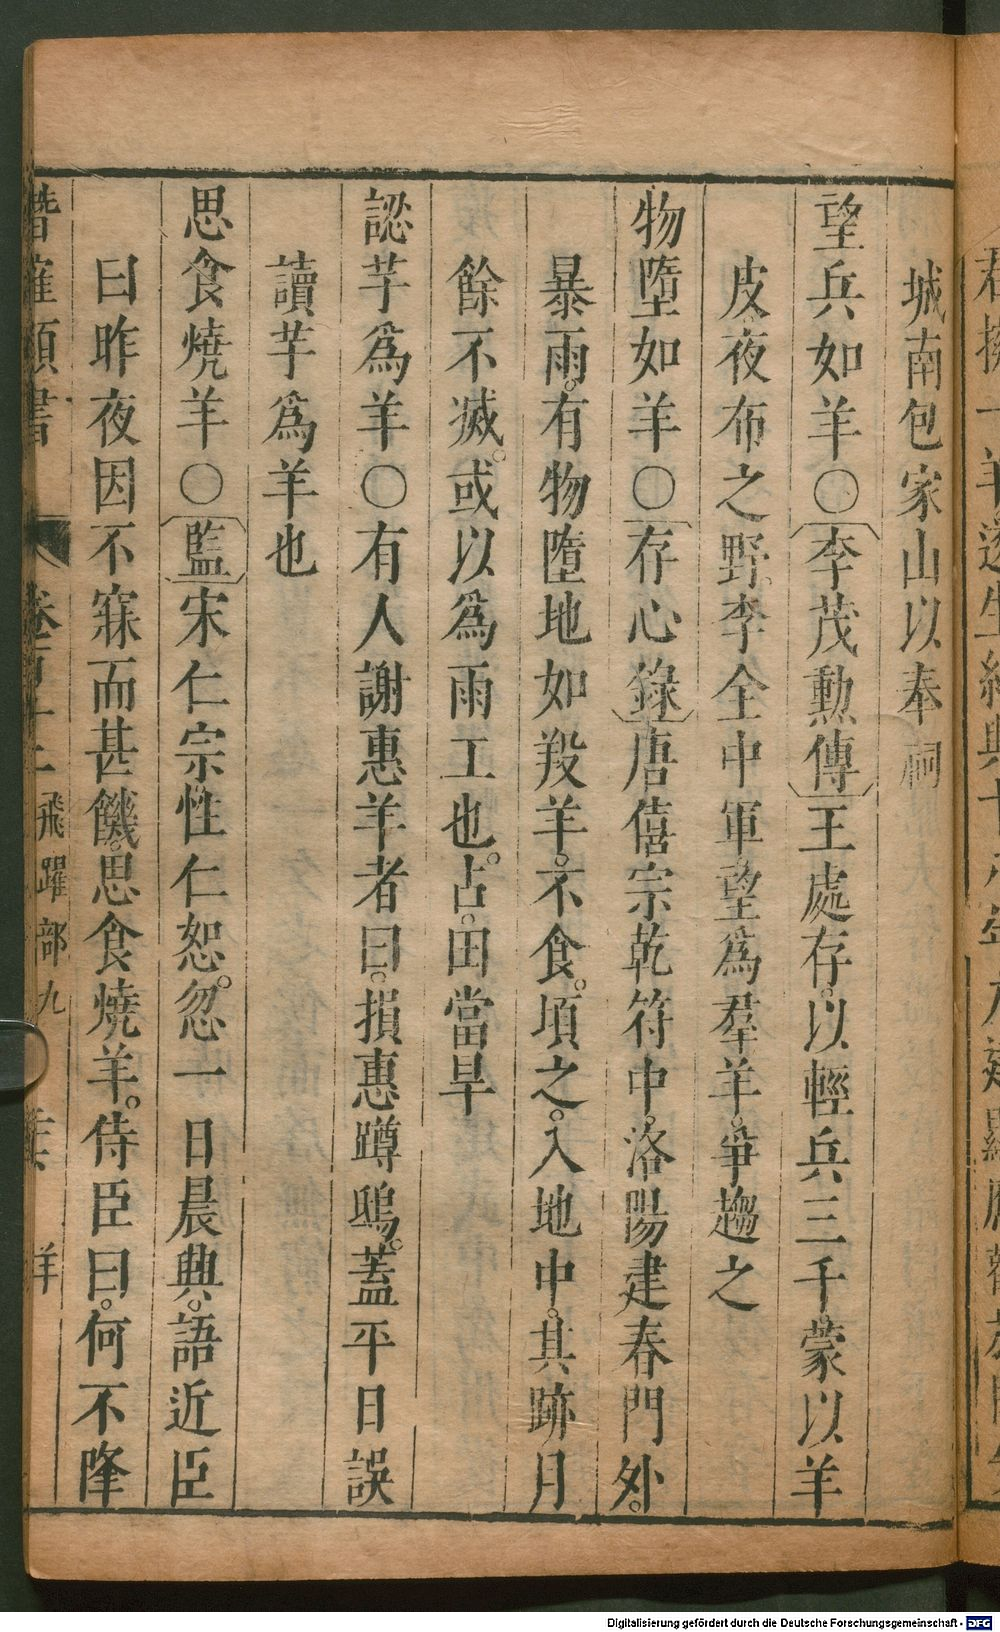 城南包家山以奉祠
望兵如羊○李茂勲傳王處存以輕兵三千蒙以羊
皮夜布之野李全中軍望爲羣羊爭趨之
物墮如羊○存心錄唐僖宗乾符中洛陽建春門外
暴雨有物墮地如羖羊不食頃之入地中其跡月
餘不滅或以爲雨工也占田當旱
認芋爲羊○有人謝惠羊者曰損惠蹲鴟蓋平日誤
讀芋爲羊也
思食燒羊○監宋仁宗性仁恕忽一日晨興語近臣
曰昨夜因不寐而甚饑思食燒羊侍臣曰何不降
潛確類書 卷百十 飛躍部九 羊
Digitalisierung gefördert durch die Deutsche Forschungsgemeinschaft - DFG